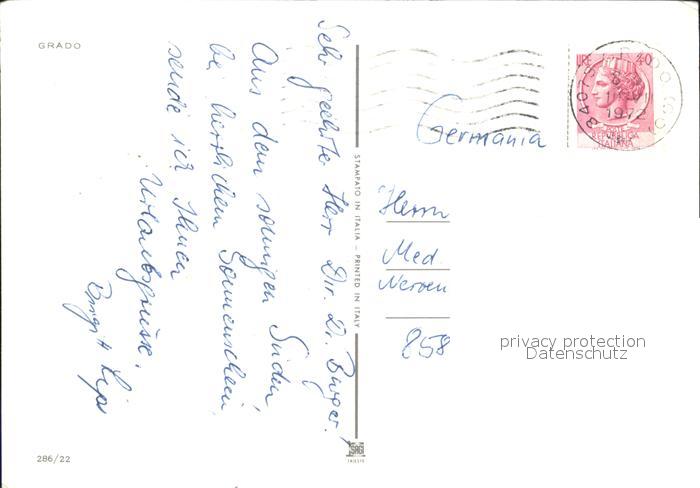 GRADO
Sehr geehrter Herr Dir. D. Burger!
Aus dem sonnigen Süden,
bei herrlichem Sonnenschein,
sende ich Ihnen
Urlaubsgrüsse.
STAMPATO IN ITALIA – PRINTED IN ITALY
LIRE 40
34073
1972
REPUBBLICA
ITALIANA
Germania
Herrn
Med
Nerven
858
privacy protection
Datenschutz
286/22